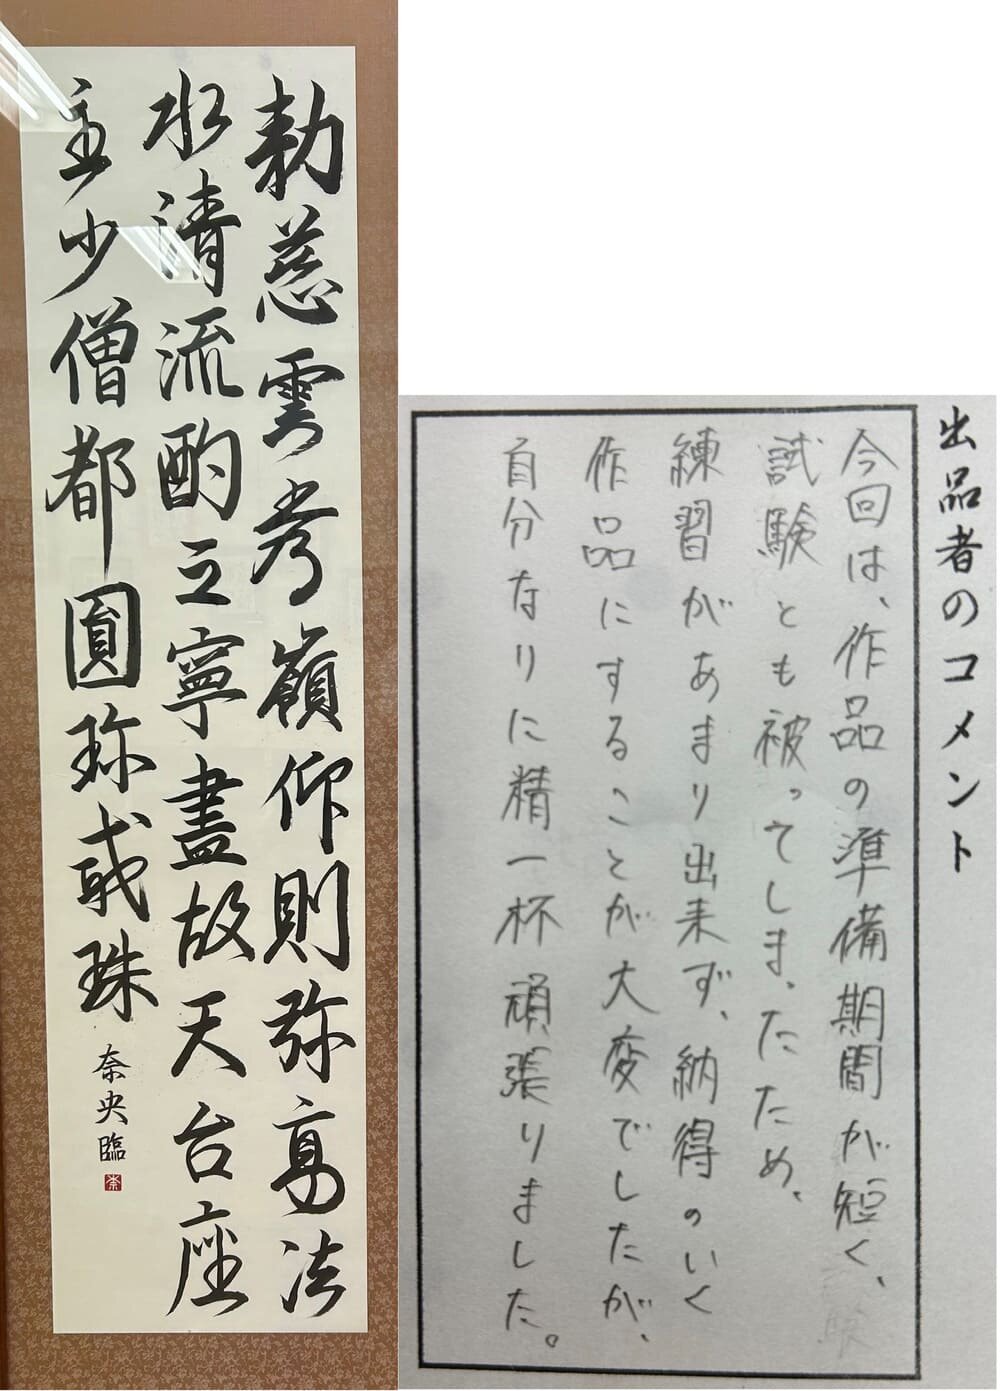 勅慈雲秀嶺仰則弥高法
水清流酌之寧盡故天台座
主少僧都圓珎戒珠
奈央臨
出品者のコメント
今回は、作品の準備期間が短く、
試験とも被ってしまったため、
練習があまり出来ず、納得のいく
作品にすることが大変でしたが、
自分なりに精一杯頑張りました。